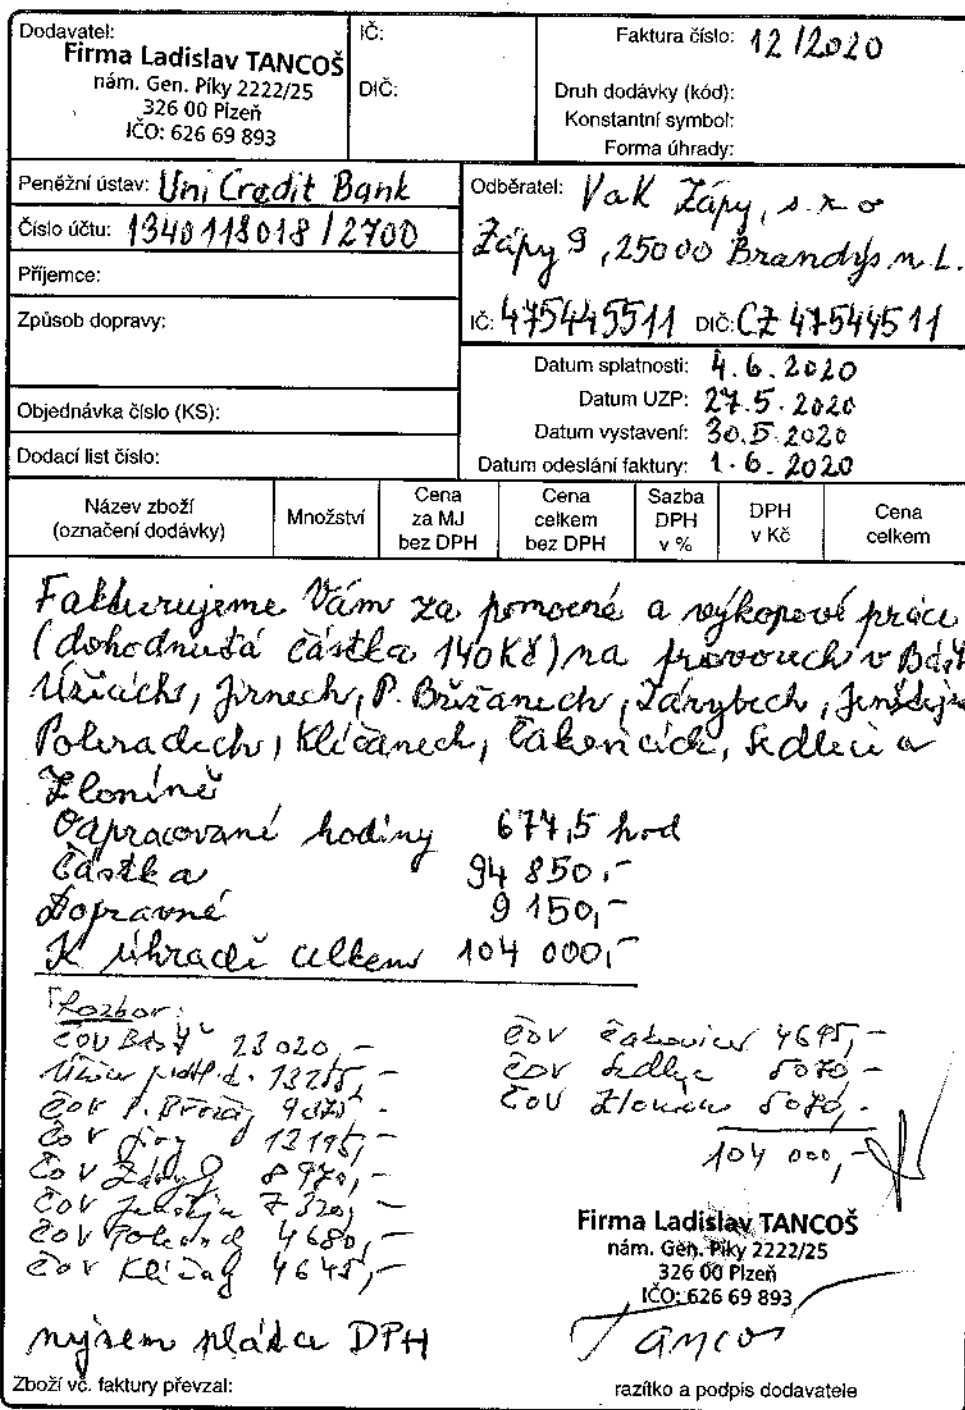 Dodavatel:
Firma Ladislav TANCOŠ
nám. Gen. Píky 2222/25
326 00 Plzeň
IČO: 626 69 893
IČ:
DIČ:
Faktura číslo: 12/2020
Druh dodávky (kód):
Konstantní symbol:
Forma úhrady:
Peněžní ústav: Uni Credit Bank
Číslo účtu: 1340118018/2700
Příjemce:
Způsob dopravy:
Objednávka číslo (KS):
Dodací list číslo:
Odběratel: VaK Zápy, s.r.o
Zápy 9, 25000 Brandýs n. L.
IČ: 475445511 DIČ: CZ 47544511
Datum splatnosti: 4.6.2020
Datum UZP: 27.5.2020
Datum vystavení: 30.5.2020
Datum odeslání faktury: 1.6.2020
Název zboží
(označení dodávky)
Množství
Cena
za MJ
bez DPH
Cena
celkem
bez DPH
Sazba
DPH
v %
DPH
v Kč
Cena
celkem
Fakturujeme Vám za pomocné a výkopové práce
(dohodnutá částka 140Kč) na provozech v
Úžicích, Jirnech, P. Břežanech, Zárybech,
Poleradech, Klíčanech, Čakovicích, Sedlci a
Zloníně
Odpracované hodiny 677,5 hod
Částka 94 850,-
Dopravné 9 150,-
K úhradě celkem 104 000,-
Rozbor:
ČOV 23 020,-
Úžice
ČOV P. Břežany
ČOV Jirny 13195,-
ČOV Záryby 8 970,-
ČOV 7 320,-
ČOV Polerady 4 680,-
ČOV Klíčany 4645,-
ČOV Čakovice 4695,-
ČOV Sedlec 5070,-
ČOV Zlonín 5070,-
104 000,-
Firma Ladislav TANCOŠ
nám. Gen. Píky 2222/25
326 00 Plzeň
IČO: 626 69 893
Tancoš
nejsem plátce DPH
Zboží vč. faktury převzal:
razítko a podpis dodavatele